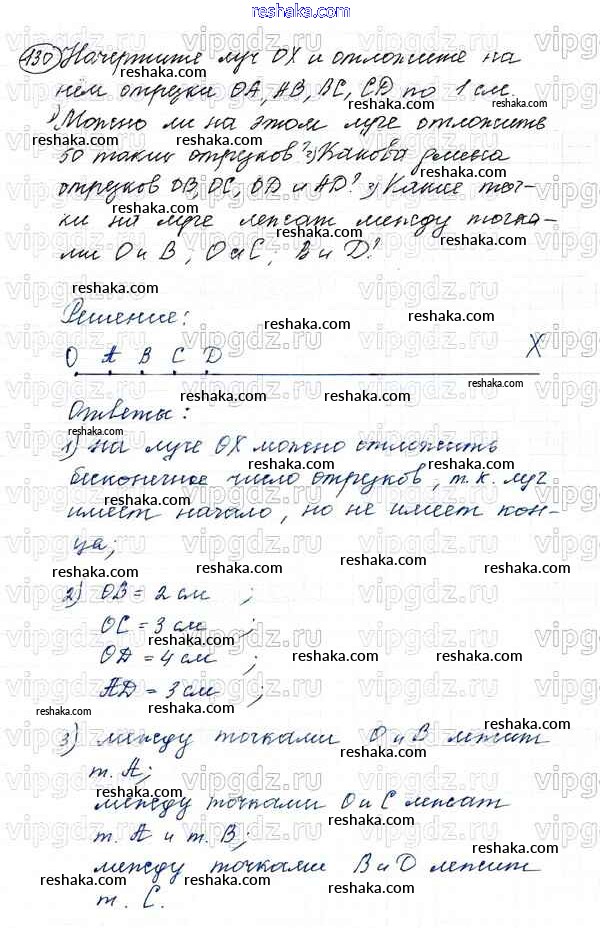 reshaka.com
130 Начертите луч OX и отложите на
нём отрезки OA, AB, BC, CD по 1 см.
1) Можно ли на этом луче отложить
50 таких отрезков? 2) Какова длина
отрезков OB, OC, OD и AD? 3) Какие точ-
ки на луче лежат между точка-
ми O и B; O и C; B и D?
Решение:
O A B C D X
Ответы:
1) на луче OX можно отложить
бесконечное число отрезков, т.к. луч
имеет начало, но не имеет кон-
ца;
2) OB = 2 см ;
OC = 3 см ;
OD = 4 см ;
AD = 3 см ;
3) между точками O и B лежит
т. A;
между точками O и C лежат
т. A и т. B;
между точками B и D лежит
т. C.